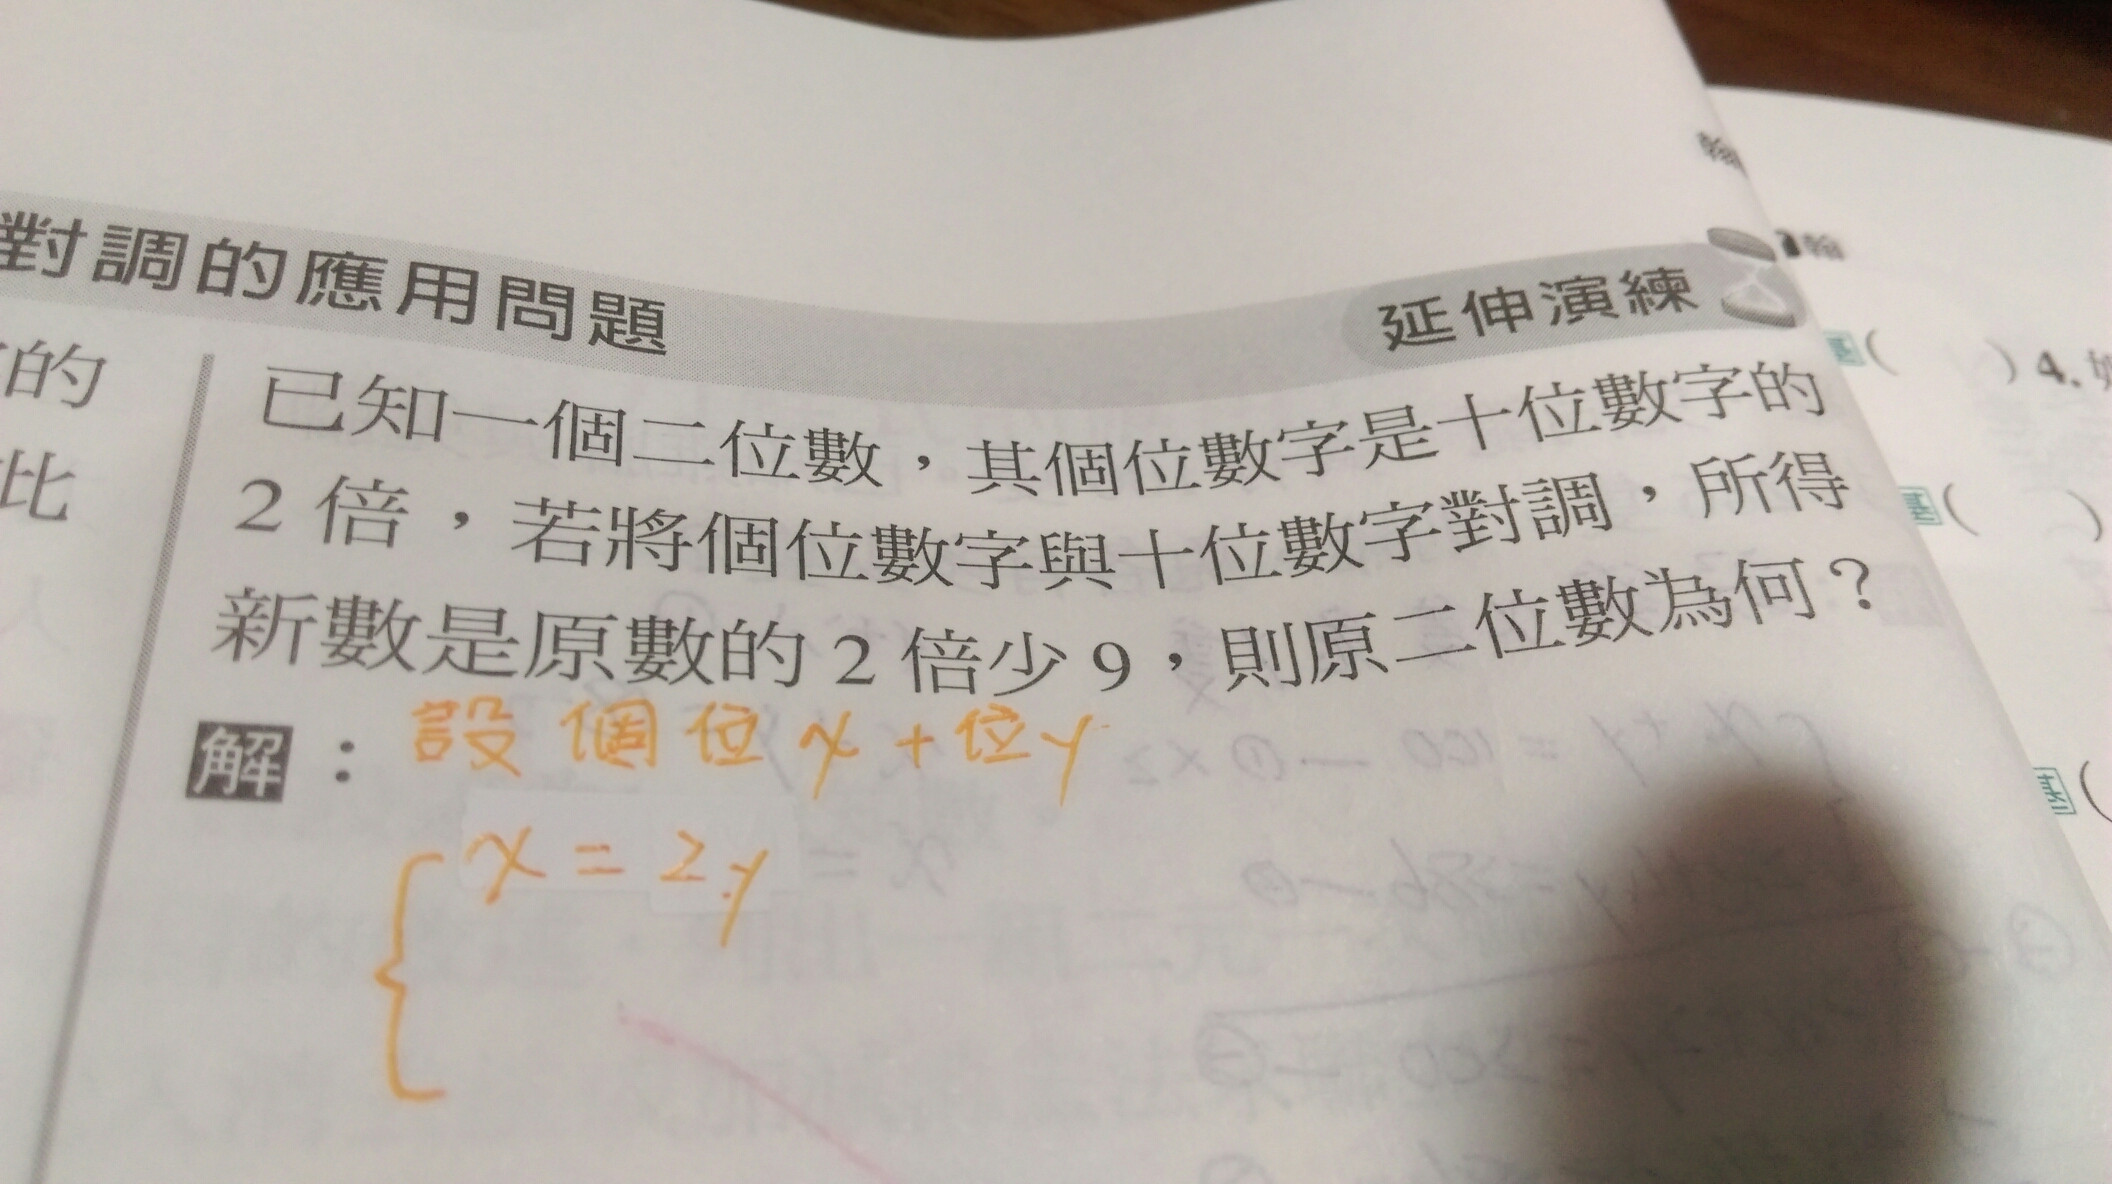 對調的應用問題
延伸演練
的
比
已知一個二位數，其個位數字是十位數字的
2 倍，若將個位數字與十位數字對調，所得
新數是原數的 2 倍少 9，則原二位數為何？
解：設個位x十位y
x=2y
翰
翰
( ) 4.
( )
(